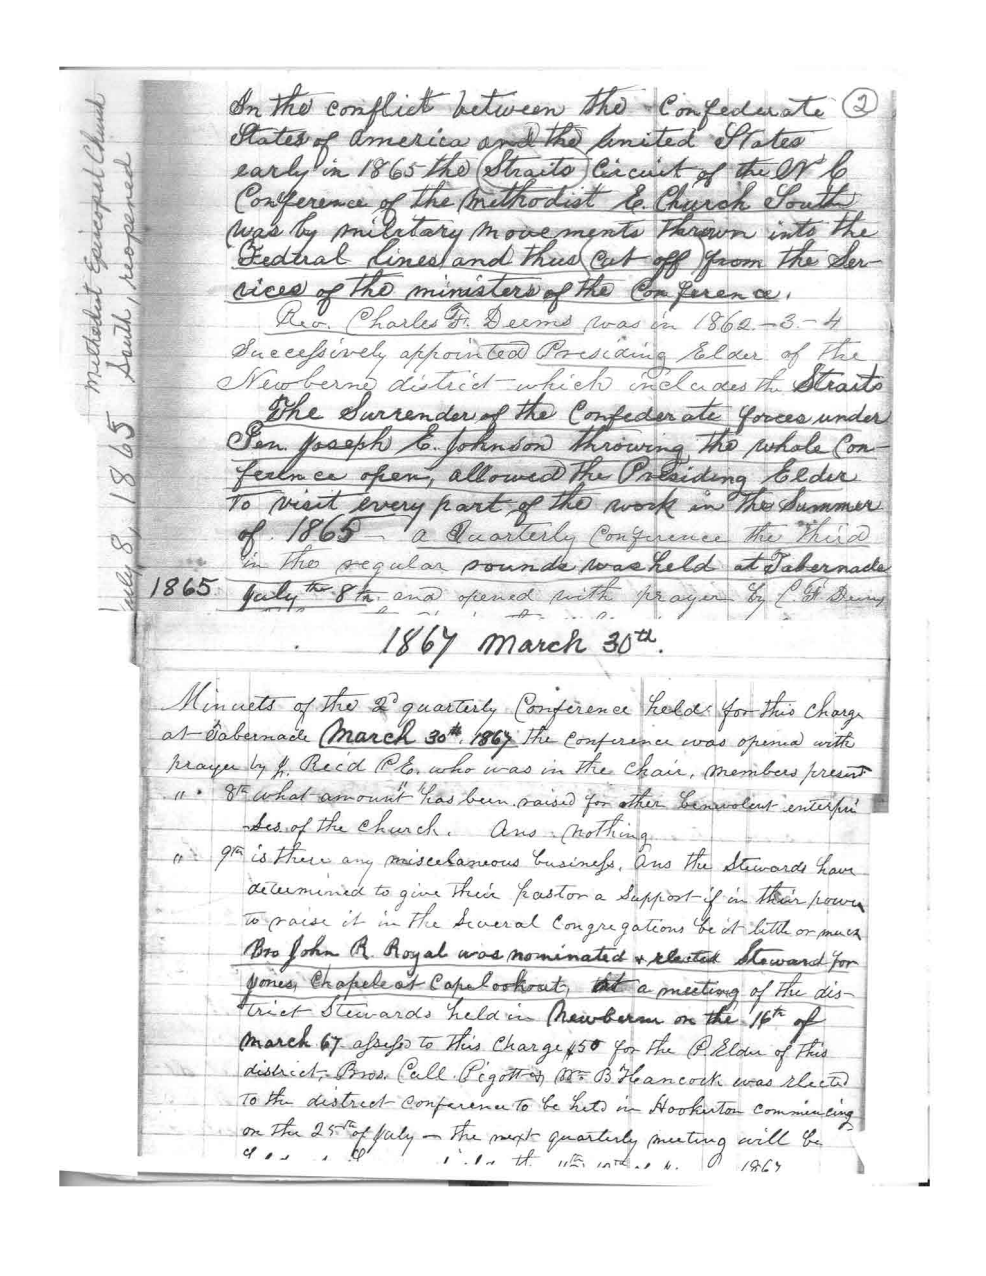 2
In the conflict between the Confederate
States of america and the United States
early in 1865 the Straits Circuit of the N C
Conference of the Methodist E. Church South
was by military movements thrown into the
Fedtral lines and thus cut off from the Ser-
vices of the ministers of the Conference.
Rev. Charles F. Deems was in 1862-3-4
Successively appointed Presiding Elder of the
Newberne district which includes the Straits
The Surrender of the Confederate forces under
Gen. Joseph E. Johnson throwing the whole Con-
ference open, allowed the Presiding Elder
to visit every part of the work in the Summer
of 1865 - a Quarterly Conference the third
in the regular rounds was held at Tabernacle
1865 July the 8th and opened with prayer by C. F. Deems
Methodist Episcopal Church
South, reopened
July 8, 1865
1867 March 30th.
Minuets of the 2d quarterly Conference held for this Charge
at Tabernacle March 30th. 1867 the Conference was opened with
prayer by Reid P.E. who was in the Chair. members present
" 8th what amount has been raised for other benevolent enterpri
ses of the church. Ans. nothing
" 9th is there any miscelaneous business. Ans the Stewards have
determined to give their pastor a Support if in their power
to raise it in the Several Congregations be it little or much
Bro John R. Royal was nominated & elected Steward for
Jones, Chaple at Cape lookout, at a meeting of the dis-
trict Stewards held in Newbern on the 16th of
march 67 assess to this Charge $50 for the P. Elder of this
district. Bros. Call Pigott & Wm B Hancock was elected
to the district conference to be held in Hookerton commencing
on the 25th of July - the next quarterly meeting will be
1867